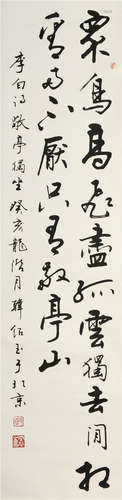 眾鳥高飛盡孤雲獨去閒相
看兩不厭只有敬亭山
李白詩敬亭獨坐癸亥龍潛月韓紹玉于北京